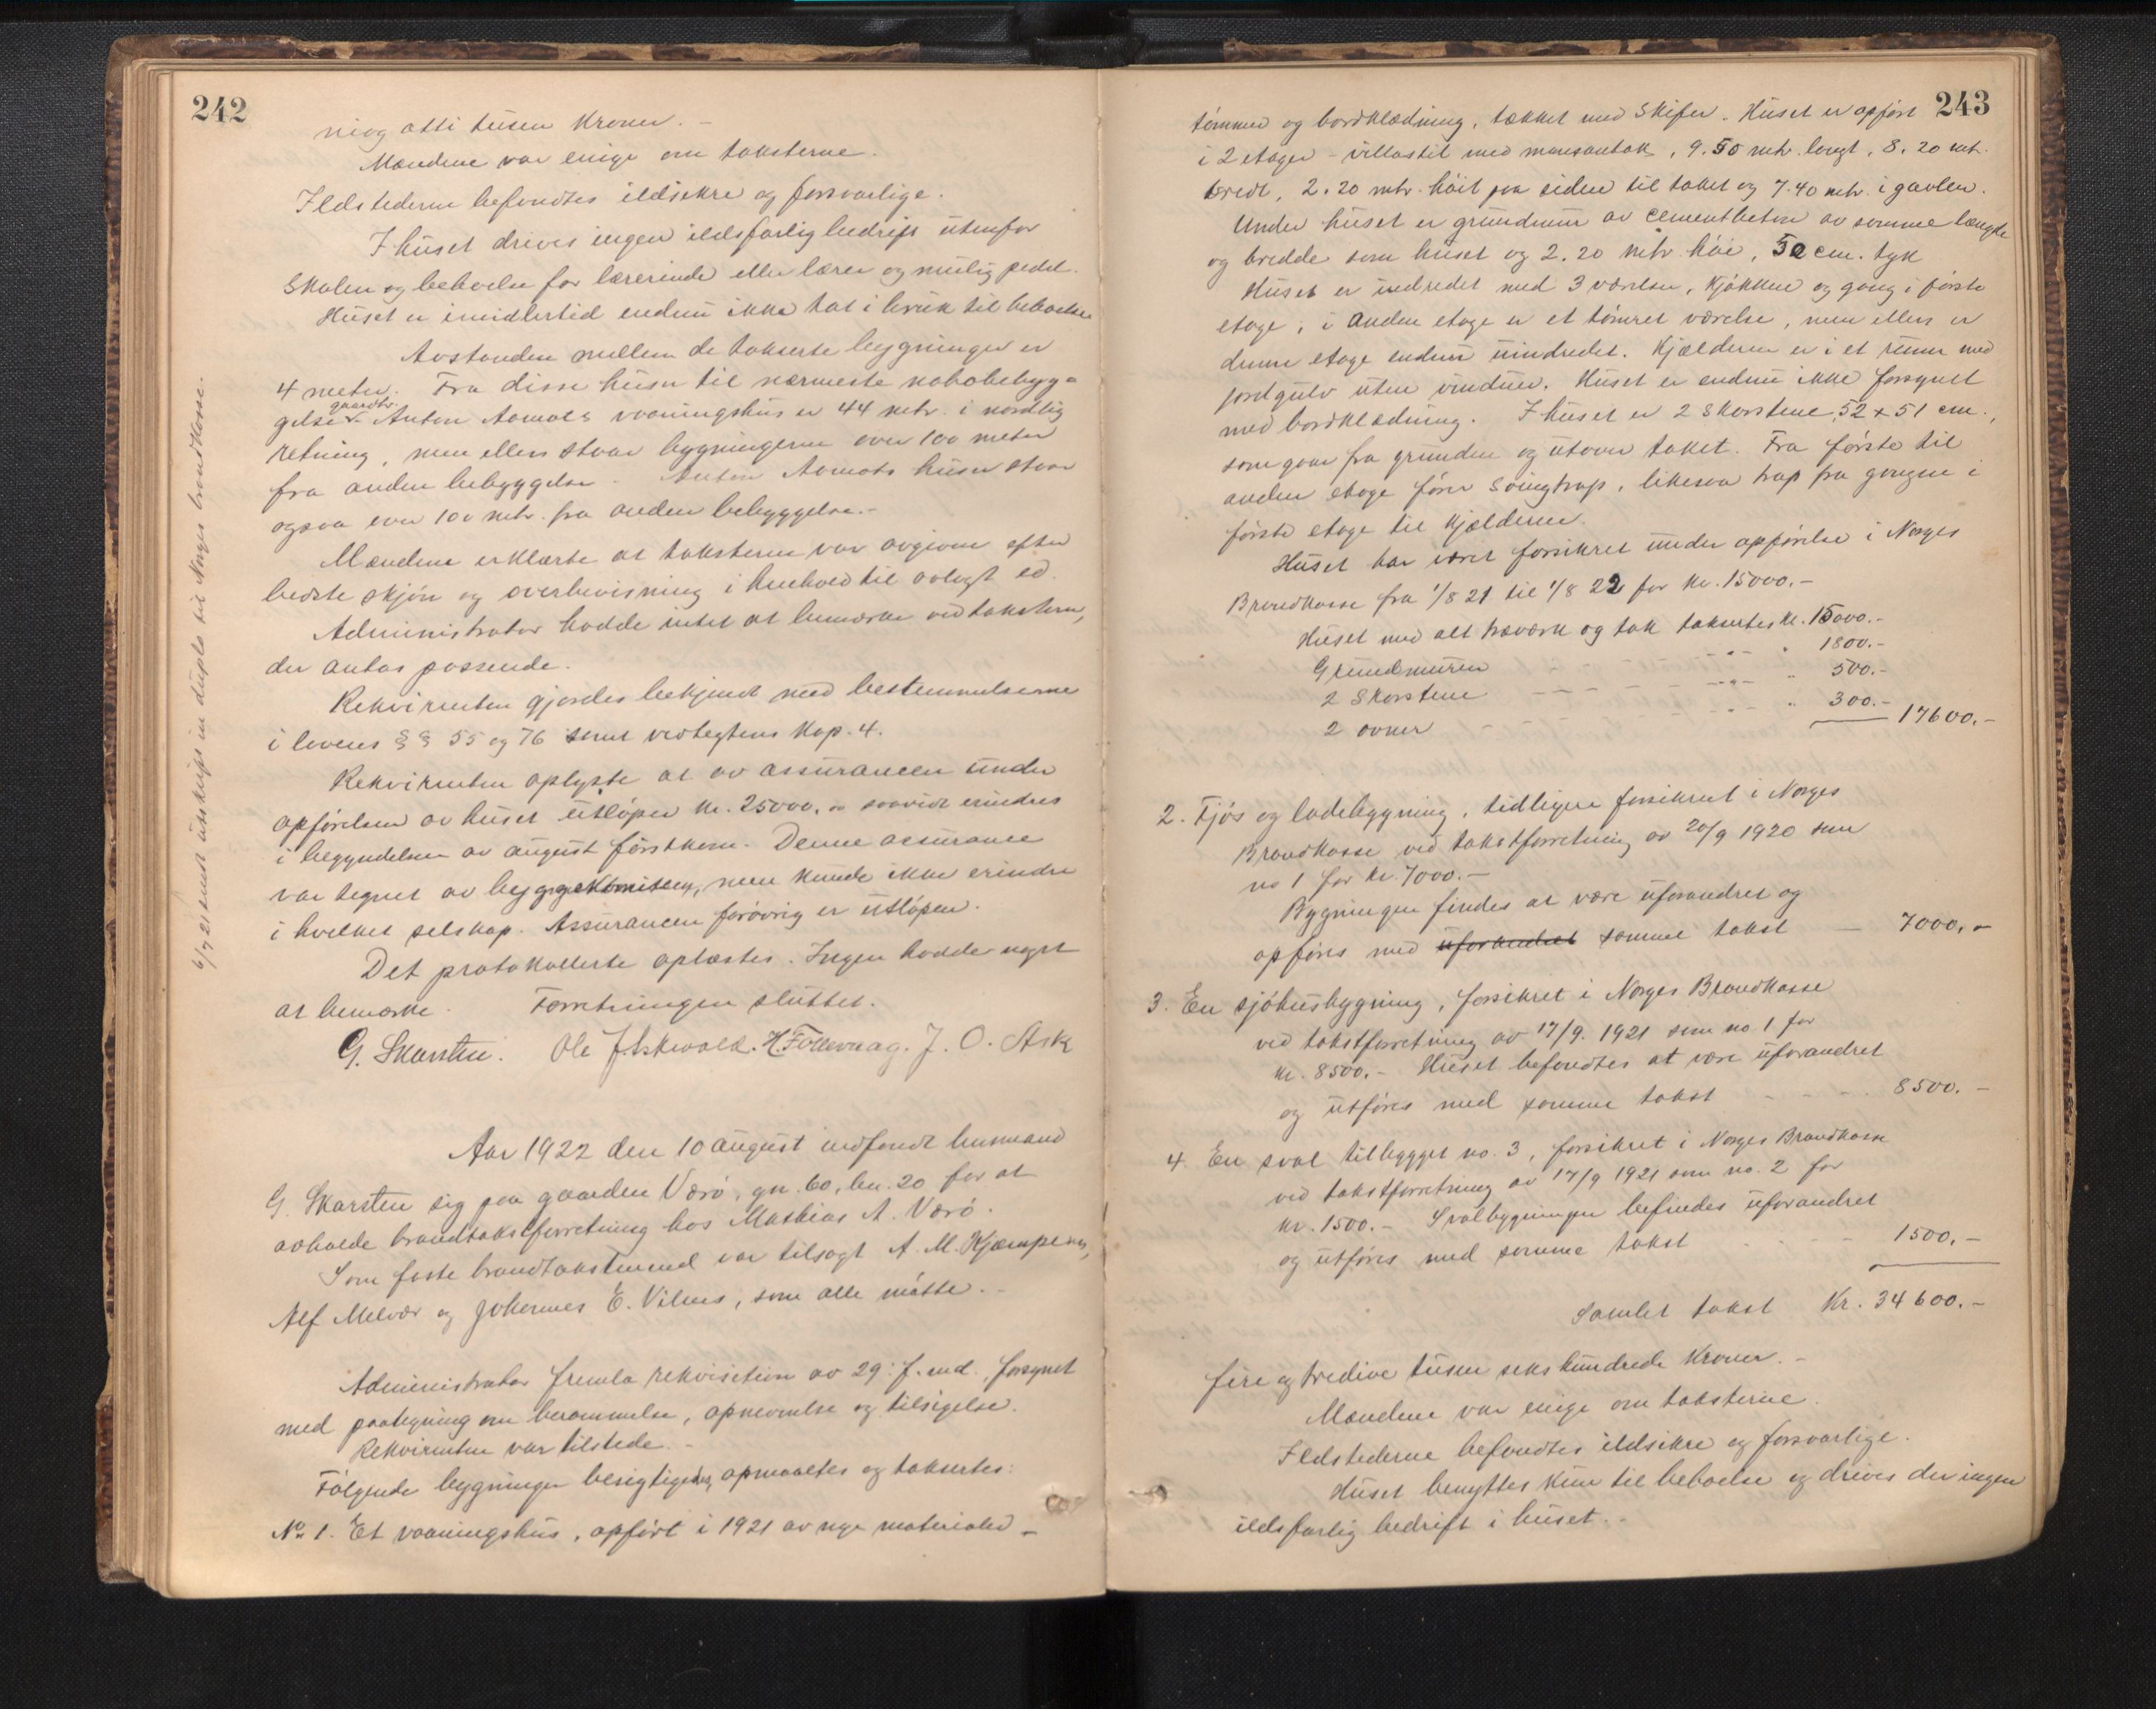 242
niog otti tusen Kroner. -
Mændene var enige om taksterne.
Ildstederne befondtes ildsikre og forsvarlige.
I huset drives ingen ildsfarlig bedrift utenfor
Skolen og beboelse for lærerinde eller lærer og mulig pedel.
Huset er imidlertid endnu ikke tat i bruk til beboelse
Avstanden mellem de takserte bygninger er
4 meter. Fra disse huser til nærmeste nabobebyg-
gelse gaardbr. Anton Aamots vaaningshus er 44 mtr. i nordlig
retning, men ellers staar bygningerne over 100 meter
fra anden bebyggelse - Anton Aamots huser staar
ogsaa over 100 mtr. fra anden bebyggelse. -
Mændene erklærte at taksterne var avgivne efter
bedste skjøn og overbevisning i henhold til avlagt ed.
Administrator hadde intet at bemærke ved taksterne,
der antas passende.
Rekvirenten gjordes bekjendt med bestemmelserne
i lovens §§ 55 og 76 samt vedtegtens Kap. 4.
Rekvirenten oplyste at av assurancen under
opførelsen av huset utløper kr. 25000,- saavidt erindres
i begyndelsen av august førstkom. Denne assurance
var tegnet av byggekomiteen, men kunde ikke erindre
i hvilket selskap. Assurancen forøvrig er utløpen.
Det protokollerte oplæstes. Ingen hadde noget
at bemærke. Forretningen sluttet.
G. Skarsten. Ole J. Askvold. H. Follevaag. J. O. Ask
Aar 1922 den 10 august indfandt lensmand
G. Skarsten sig paa gaarden Værö, gn. 60, bn. 20 for at
avholde brandtakstforretning hos Mathias A. Værö.
Som faste brandtakstmænd var tilsagt A. M. Kjæmpenes,
Alf Melvær og Johannes E. Vilnes, som alle møtte. -
Administrator fremla rekvisition av 29. f. md., forsynet
med paategning om berammelse, opnevnelse og tilsigelse.
Rekvirenten var tilstede. -
Følgende bygninger besigtigedes, opmaaltes og taksertes:
No 1. Et vaaningshus, opført i 1921 av nye materialer -
6/7 21 sendt utskrift in duplo til Norges brandkasse.
243
tømmer og bordklædning, tækket med Skifer. Huset er opført
i 2 etager - villastil med mansantak, 9.50 mtr. langt, 8.20 mtr.
bredt, 2.20 mtr. høit paa siden til taket og 7.40 mtr. i gavlen.
Under huset er grundmur av cementbeton av samme længde
og bredde som huset og 2.20 mtr. høi, 50 cm. tyk
Huset er indredet med 3 værelser, kjøkken og gang i første
etage, i anden etage er et tømret værelse, men ellers er
denne etage endnu uindredet. Kjælderen er i et rum med
jordgulv uten vinduer. Huset er endnu ikke forsynet
med bordklædning. I huset er 2 skorstene, 52 x 51 cm.,
som gaar fra grunden og utover taket. Fra første til
anden etage fører svingtrap, likesaa trap fra gangen i
første etage til kjælderen.
Huset har været forsikret under opførelse i Norges
Brandkasse fra 1/8 21 til 1/8 22 for kr. 15000.-
Huset med alt træværk og tak taksertes kr. 15000.-
Grundmuren - - - " 1800.-
2 Skorstene - - - " 500.-
2 ovner - - - " 300.- 17600.-
2. Fjøs og ladebygning, tidligere forsikret i Norges
Brandkasse ved takstforretning av 20/9 1920 som
no 1 for kr. 7000.-
Bygningen findes at være uforandret og
opføres med uforandret samme takst - 7000.-
3. En sjøhusbygning, forsikret i Norges Brandkasse
ved takstforretning av 17/9. 1921 som no 1 for
kr. 8500.- Huset befondtes at være uforandret
og utføres med samme takst - - - 8500.-
4. En sval tilbygget no. 3, forsikret i Norges Brandkasse
ved takstforretning av 17/9 1921 som no. 2 for
kr. 1500.- Svalbygningen befindes uforandret
og utføres med samme takst - - - 1500.-
Samlet takst Kr. 34600.-
fire og tredive tusen seks hundrede Kroner. -
Mændene var enige om taksterne.
Ildstederne befondtes ildsikre og forsvarlige.
Huset benyttes kun til beboelse og drives der ingen
ildsfarlig bedrift i huset. -